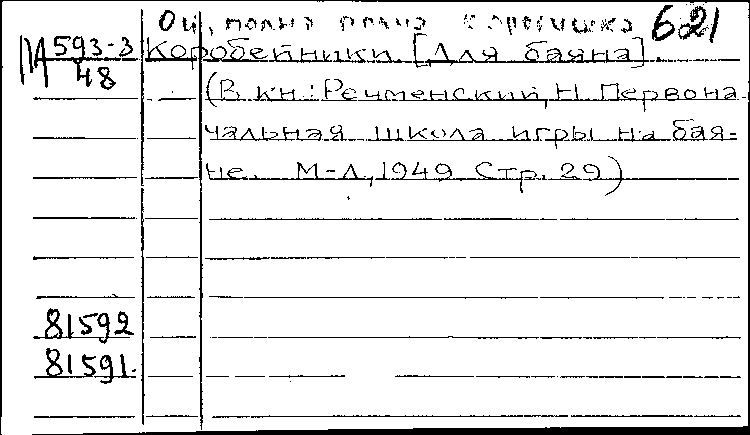 Ой, полна полна коробушка 621
М 593-3 Коробейники. [Для баяна].
48 (В кн.: Речменский, Н. Первона-
чальная школа игры на бая-
не. М-Л, 1949 Стр. 29)
81592
81591.